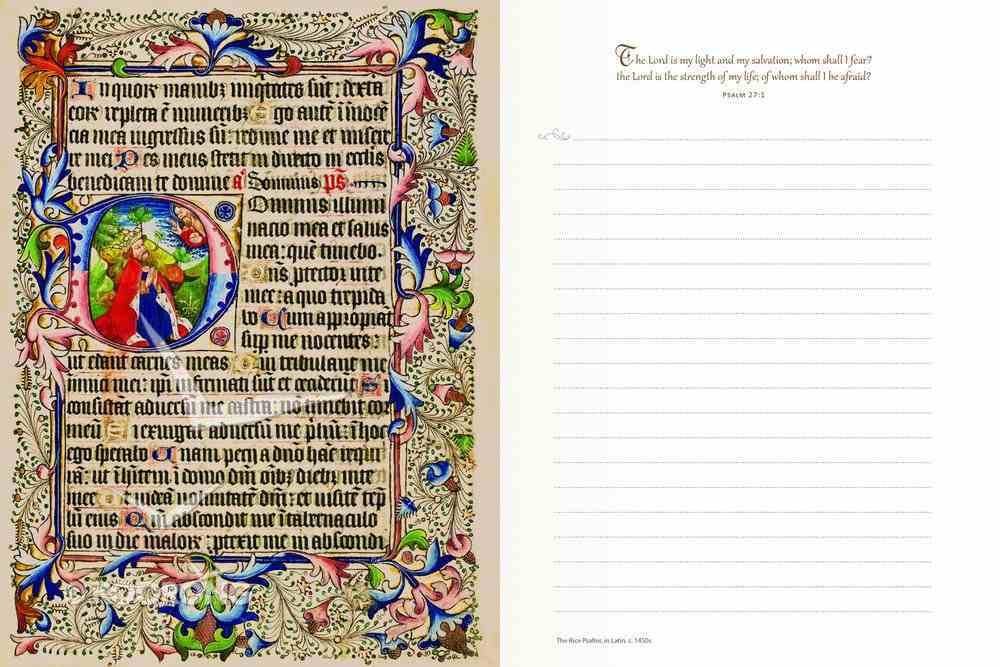 In quorᷓ manibꝫ iniqtates sūt : dexta
eorᷓ repleta ē muneribꝫ Ego autē ī inoce
cia mea ingressus sū : redime me et miser
re mei Pes meus stetit in directo in ecclis
benedicam te domine
Dominus illumi
nacio mea et salus
mea : quē timebo.
Dns ptector vite
mee : a quo trepida
bo Cum appropiāt
sup me nocentes :
ut edant carnes meas Qui tribulant me
inimici mei : ipi infirmati sūt et ceciderūt Si
consistāt adversū me castra : nō timebit cor
meū Si exurgat adversū me pliū : ī hoc
ego sperabo Unam pecii a dnō hāc requi
rā : ut īhītem ī domo dni oibꝫ diebꝫ vite
mee Ut videā voluntatē dni : et visitē tēp
lū eius Qm abscondit me ī tabernaculo
suo in die malorᷓ : ptexit me in abscondi
The Lord is my light and my salvation; whom shall I fear?
the Lord is the strength of my life; of whom shall I be afraid?
PSALM 27:1
The Rice Psalter, in Latin, c. 1450s